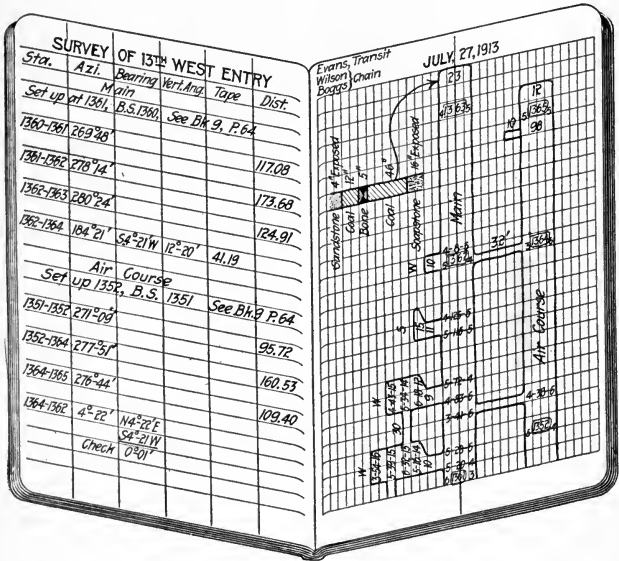 SURVEY OF 13TH WEST ENTRY
Sta. Azi. Bearing Vert.Ang. Tape Dist.
Main
Set up at 1361, B.S.1360, See Bk 9, P.64
1360-1361 269°48'
117.08
1361-1362 278°14'
173.68
1362-1363 280°24'
124.91
1362-1364 184°21' S4°-21'W 12°-20' 41.19
Air Course
Set up 1352, B.S. 1351 See Bk.9 P.64
1351-1352 271°09'
95.72
1352-1364 277°51'
160.53
1364-1365 276°44'
109.40
1364-1362 4°-22' N4°-22'E
S4°-21'W
Check 0°01'
Evans, Transit
Wilson
Boggs } Chain
JULY, 27, 1913
23
4 1363 5
12
5 1365
10
98
Sandstone 4" Exposed
Coal 12"
Bone 5"
Coal 46"
Soapstone 16" Exposed
Main
W
10
4-8-5
32'
Air Course
S
15
11
4-125-5
5-116-5
W
5-72-4
4-63-5
3-44-6
9
30
4-38-6
1352
W
10
5-29-5
5-20-4